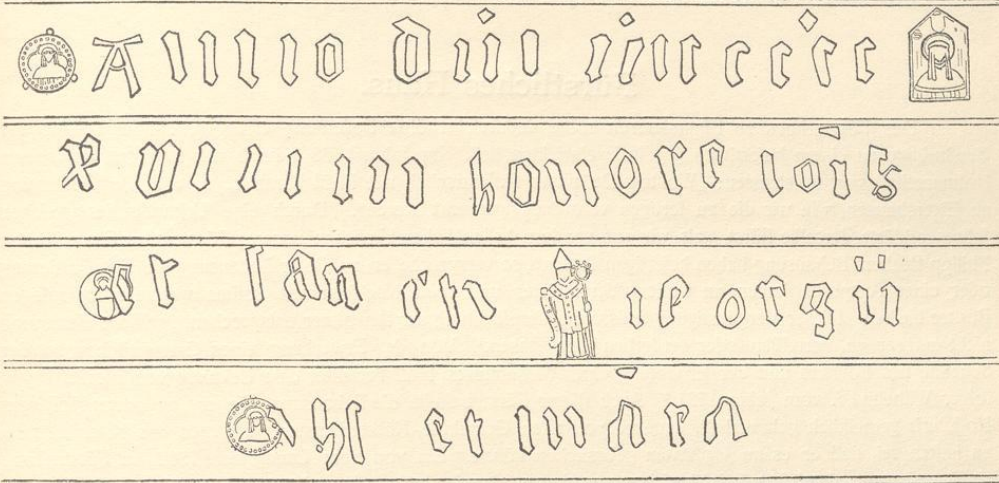 Anno dni cccc
xviii in honore iohis
et sancti ieorgii
et maria